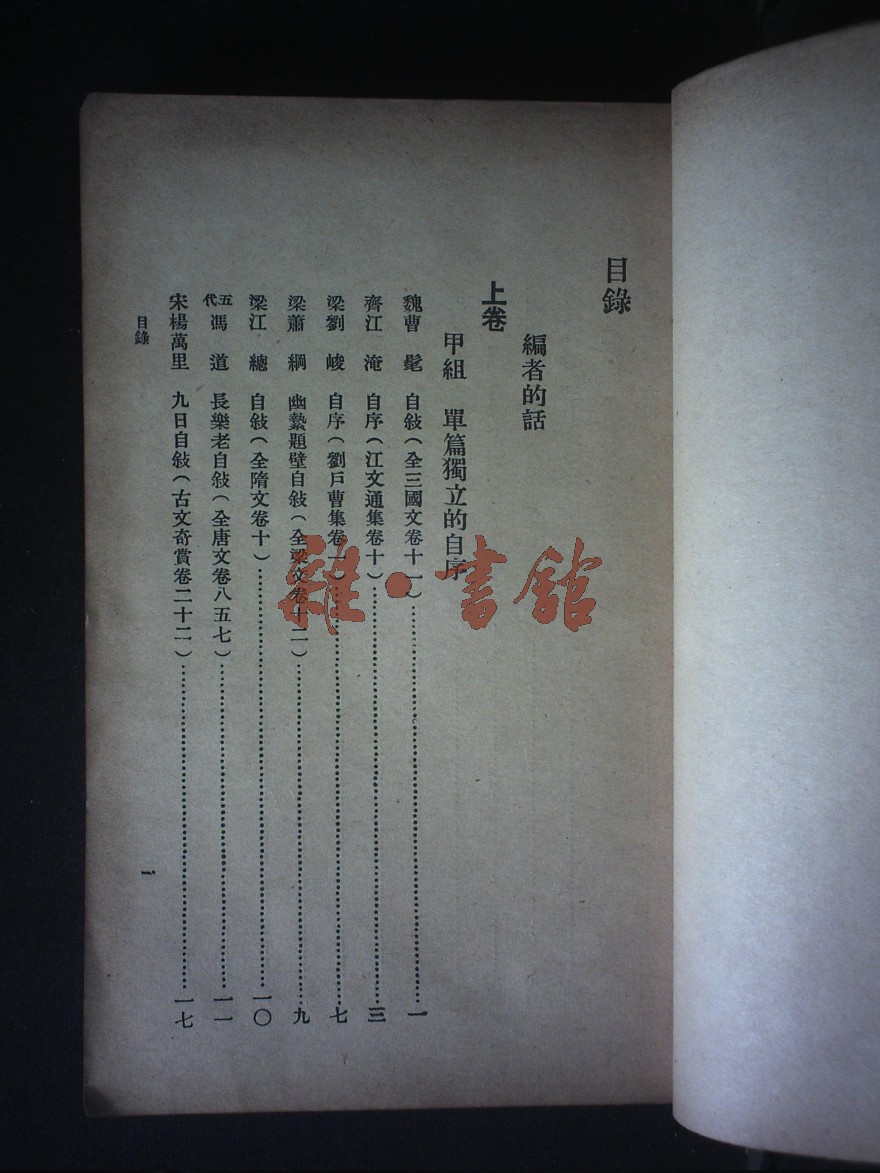 目錄
編者的話
上卷
甲組 單篇獨立的自序
魏曹髦 自敍(全三國文卷十一)……一
齊江淹 自序(江文通集卷十)……三
梁劉峻 自序(劉戶曹集卷一)……七
梁蕭綱 幽縶題壁自敍(全梁文卷十二)……九
梁江總 自敍(全隋文卷十)……一〇
五代馮道 長樂老自敍(全唐文卷八五七)……一一
宋楊萬里 九日自敍(古文奇賞卷二十二)……一七
目錄
一
雜·書館